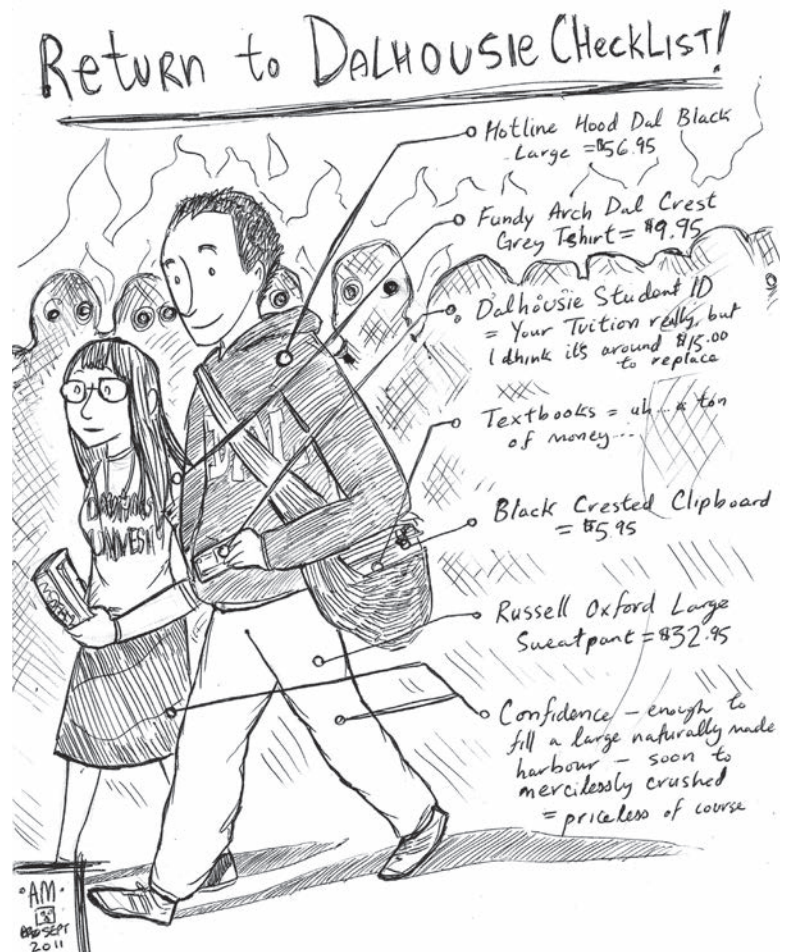 Return to Dalhousie Checklist!
Hotline Hood Dal Black
Large = $56.95
Fundy Arch Dal Crest
Grey Tshirt = $9.95
Dalhousie Student ID
= Your Tuition really, but
I think it's around $15.00
to replace
Textbooks = uh... a ton
of money...
Black Crested Clipboard
= $5.95
Russell Oxford Large
Sweatpant = $32.95
Confidence – enough to
fill a large naturally made
harbour – soon to
mercilessly crushed
= priceless of course
DAL
UNIVESI
·AM·
SEPT
2011